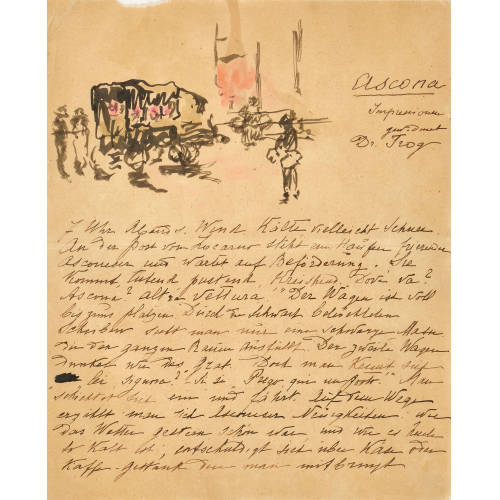 Ascona
Impressionen
gewidmet
Dr. Trog
7 Uhr Abends. Wind Kälte vielleicht Schnee.
An der Post von Locarno steht ein Haufen
Asconesen und wartet auf Beförderung. Sie
kommt, tutend pustend, kreischend. Dove va?
Ascona? altra vettura. Der Wagen ist voll
bis zum platzen. Durch die schwach beleuchteten
Scheiben sieht man nur eine schwarze Masse
die den ganzen Raum ausfüllt. Der zweite Wagen
dunkel wie das Grab. Doch man kennt sich
lei Signora? Si si Prego qui un posto. Man
schiebt sich ein und fährt. Auf dem Wege
erzählt man sich Asconeser Neuigkeiten: wie
das Wetter gestern schon war und wie es heute
so kalt ist, entschuldigt sich über Käse oder
Kaffe-gestank den man mitbringt